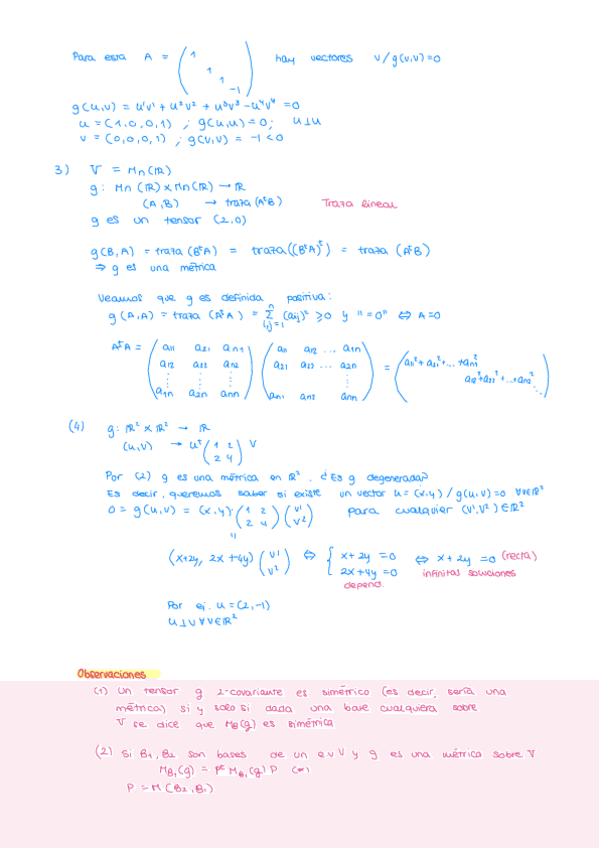 Para esta A = ( 1 1 1 -1 ) hay vectores v / g(v,v)=0
g(u,v) = u¹v¹ + u²v² + u³v³ - u⁴v⁴ = 0
u = (1,0,0,1) ; g(u,u) = 0; u⊥u
v = (0,0,0,1) ; g(v,v) = -1 < 0
3) V = Mn(ℝ)
g: Mn(ℝ) x Mn(ℝ) → ℝ
(A,B) → traza(AᵗB) Traza lineal
g es un tensor (2,0)
g(B,A) = traza(BᵗA) = traza((BᵗA)ᵗ) = traza (AᵗB)
⇒ g es una métrica
Veamos que g es definida positiva:
g(A,A) = traza (AᵗA) = Σ i,j=1 n (aij)² ≥ 0 y "=0" ⇔ A=0
AᵗA = ( a11 a21 an1 a12 a22 an2 ⋮ ⋮ ⋮ a1n a2n ann ) ( a11 a12 ... a1n a21 a22 ... a2n ⋮ ⋮ ⋮ an1 an2 ann ) = ( a11² + a21² + ... + an1² a12² + a22² + ... + an2² ⋱ )
(4) g: ℝ² x ℝ² → ℝ
(u,v) → uᵗ ( 1 2 2 4 ) v
Por (2) g es una métrica en ℝ². ¿Es g degenerada?
Es decir, queremos saber si existe un vector u = (x,y) / g(u,v) = 0 ∀v∈ℝ²
0 = g(u,v) = (x,y) · ( 1 2 2 4 ) ( v¹ v² ) para cualquier (v¹,v²) ∈ ℝ²
"
(x+2y, 2x+4y) ( v¹ v² ) ⇔ { x + 2y = 0 2x + 4y = 0 ⇔ x + 2y = 0 (recta)
depend. infinitas soluciones
Por ej. u = (2,-1)
u⊥v ∀v∈ℝ²
Observaciones
(1) Un tensor g 2-covariante es simétrico (es decir, sería una
métrica) si y solo si dada una base cualquiera sobre
V se dice que MB(g) es simétrica
(2) Si B1, B2 son bases de un e.v V y g es una métrica sobre V
P = M(B2,B1)